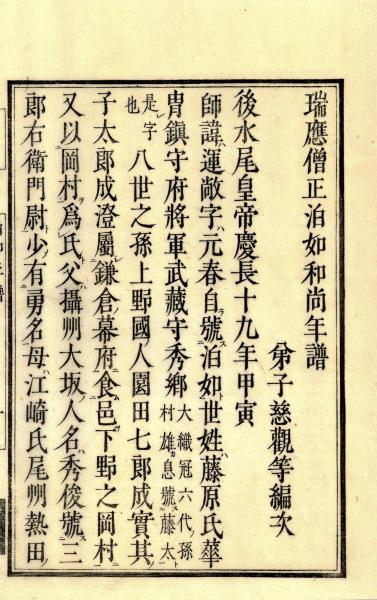 瑞應僧正泊如和尚年譜
弟子慈觀等編次
後水尾皇帝慶長十九年甲寅
師諱運敞字元春自號泊如世姓藤原氏華
冑鎭守府將軍武藏守秀鄕大織冠六代孫村雄息號藤太
是字也八世之孫上野國人園田七郎成實其
子太郎成澄屬鎌倉幕府食邑下野之岡村
又以岡村爲氏父攝州大坂人名秀俊號三
郎右衛門尉少有勇名母江崎氏尾州熱田